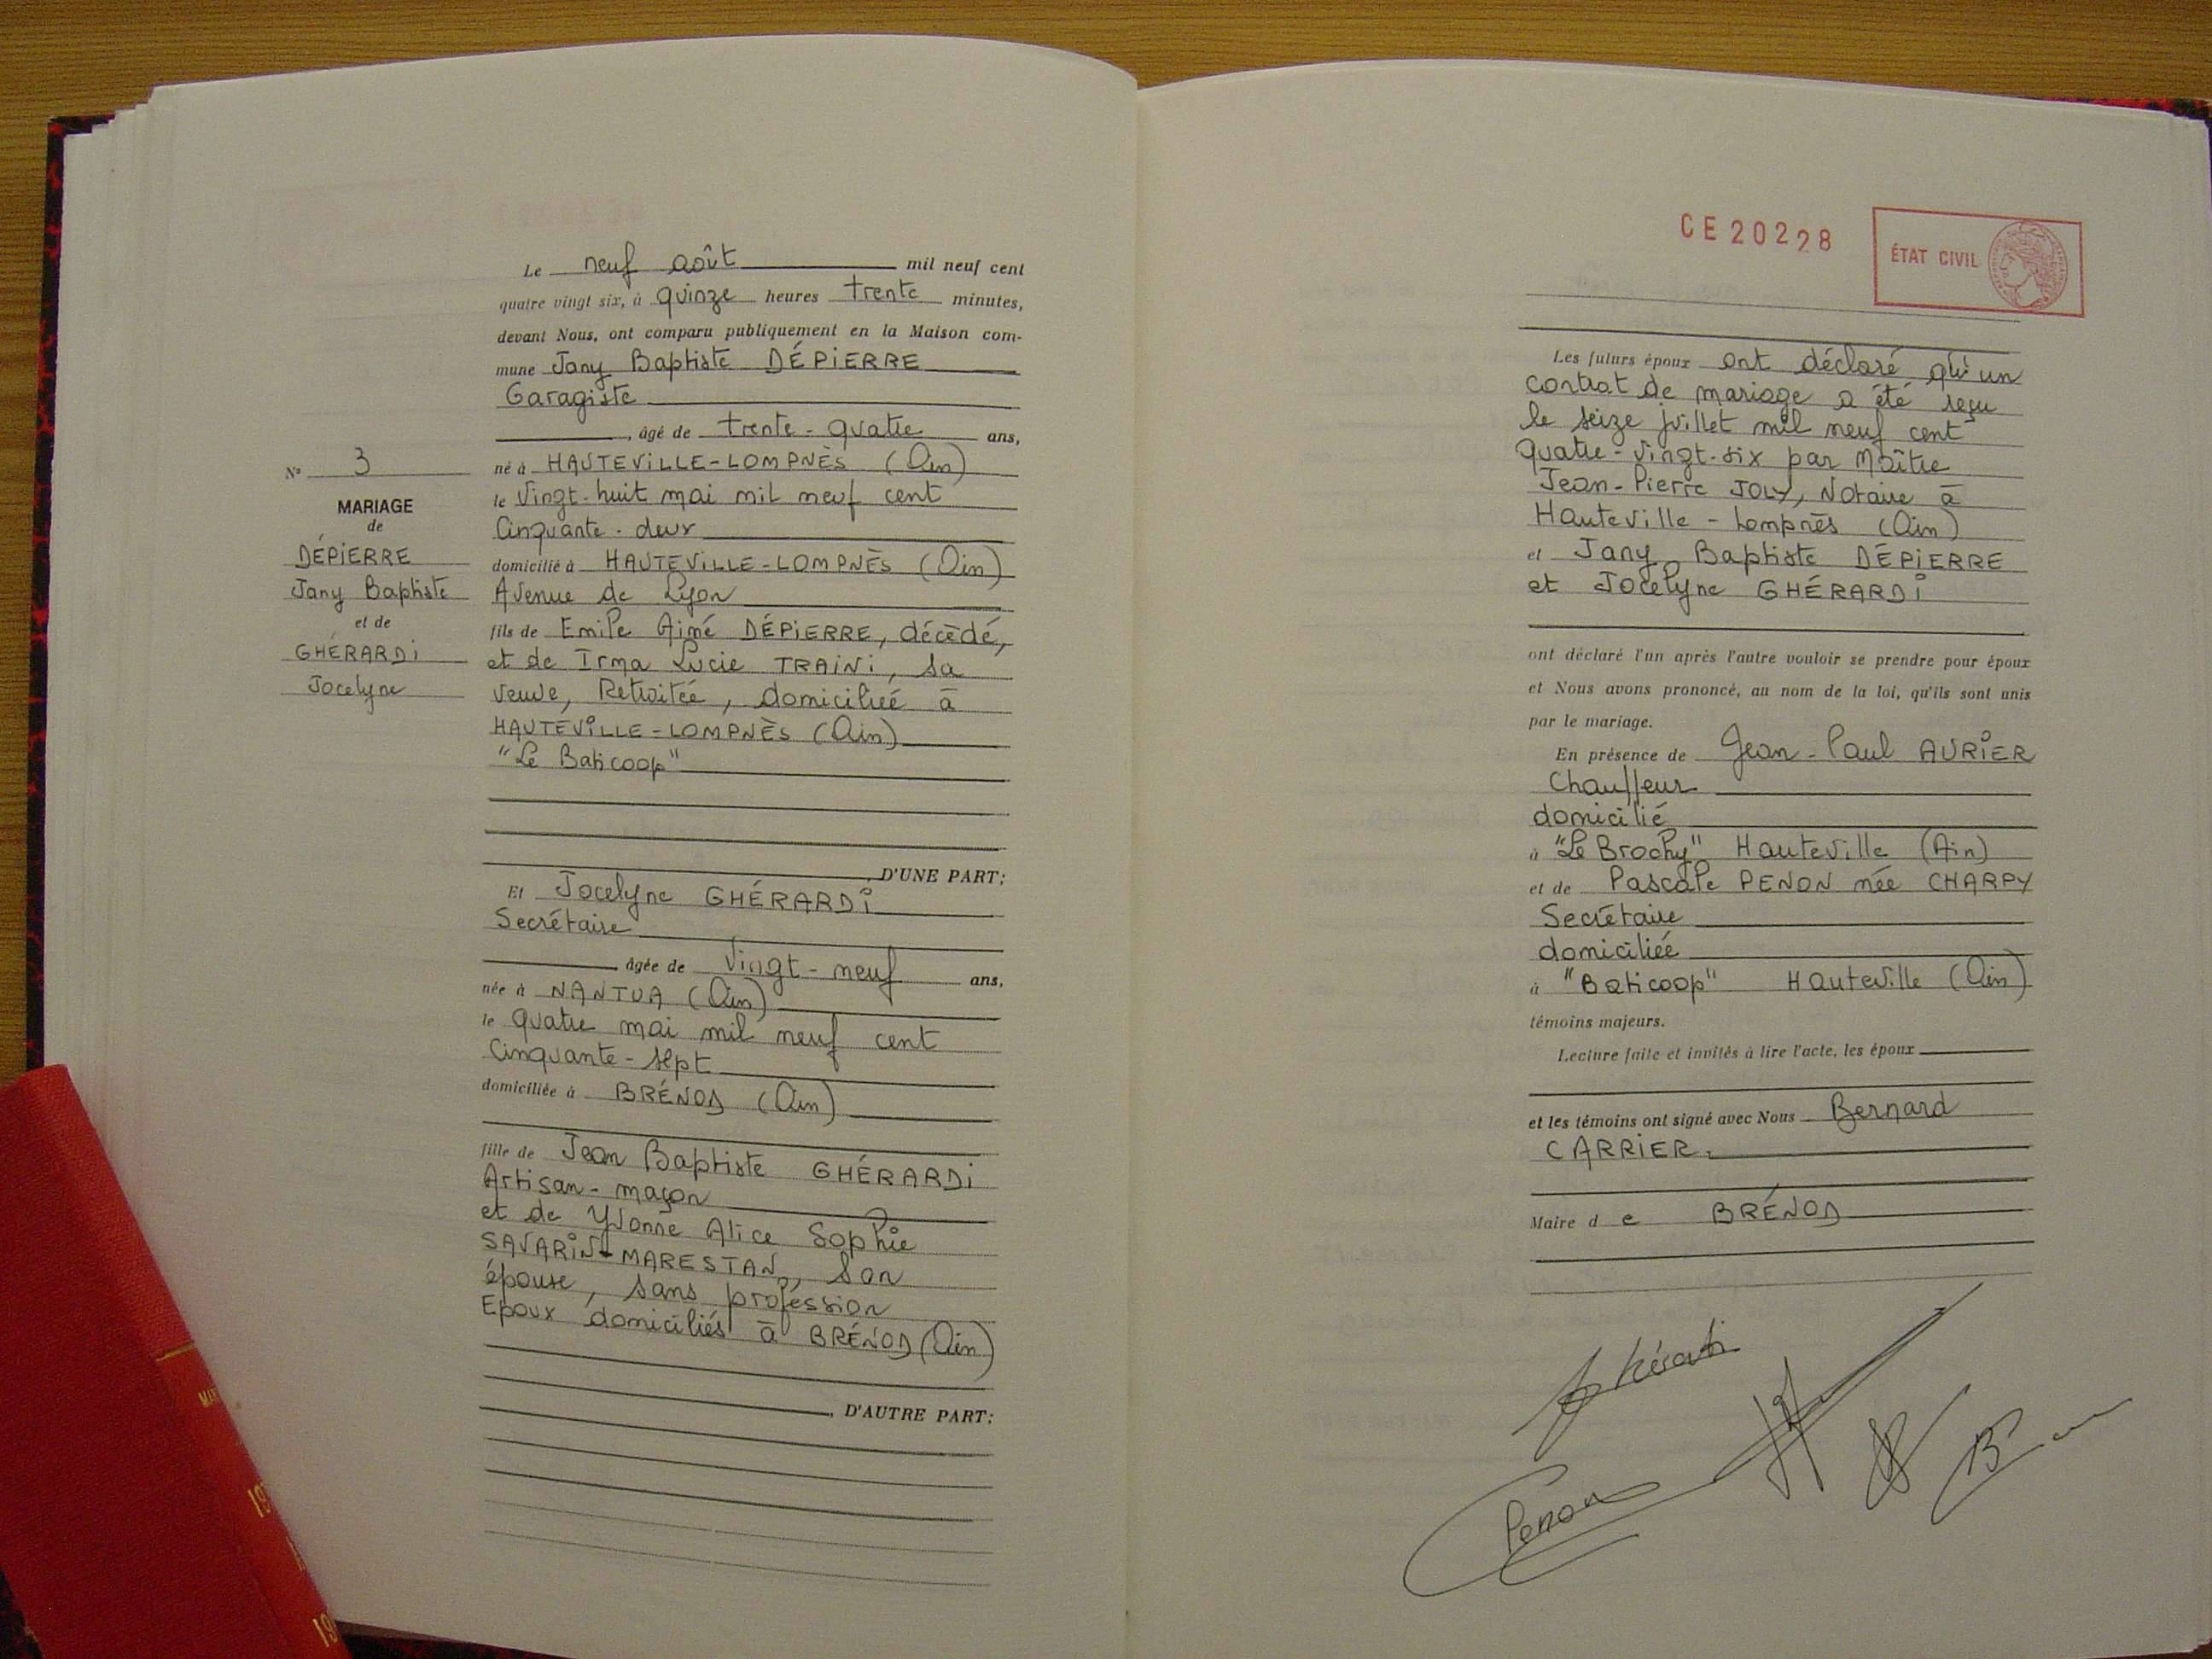 Le neuf août mil neuf cent
quatre vingt six, à quinze heures trente minutes,
devant Nous, ont comparu publiquement en la Maison com-
mune Jany Baptiste DÉPIERRE
Garagiste
, âgé de trente-quatre ans,
né à HAUTEVILLE-LOMPNÈS (Ain)
le Vingt-huit mai mil neuf cent
Cinquante-deux
domicilié à HAUTEVILLE-LOMPNÈS (Ain)
Avenue de Lyon
fils de Emile Aimé DÉPIERRE, décédé,
et de Irma Lucie TRAINI, sa
veuve, Retraitée, domiciliée à
HAUTEVILLE-LOMPNÈS (Ain)
"Le Baticoop"
, D'UNE PART;
Et Jocelyne GHÉRARDI
Secrétaire
âgée de Vingt-neuf ans,
née à NANTUA (Ain)
le quatre mai mil neuf cent
Cinquante-sept
domiciliée à BRÉNOD (Ain)
fille de Jean Baptiste GHÉRARDI
Artisan-maçon
et de Yvonne Alice Sophie
SAVARIN-MARESTAN, Son
épouse, sans profession
Epoux domiciliés à BRÉNOD (Ain)
, D'AUTRE PART;
N° 3
MARIAGE
de
DÉPIERRE
Jany Baptiste
et de
GHÉRARDI
Jocelyne
CE20228
ÉTAT CIVIL
Les futurs époux ont déclaré qu'un
contrat de mariage a été reçu
le seize juillet mil neuf cent
quatre-vingt-six par Maître
Jean-Pierre JOLY, Notaire à
Hauteville-Lompnès (Ain)
et Jany Baptiste DÉPIERRE
et Jocelyne GHÉRARDI
ont déclaré l'un après l'autre vouloir se prendre pour époux
et Nous avons prononcé, au nom de la loi, qu'ils sont unis
par le mariage.
En présence de Jean-Paul AURIER
Chauffeur
domicilié
à "Le Brochy" Hauteville (Ain)
et de Pascale PENON née CHARPY
Secrétaire
domiciliée
à "Baticoop" Hauteville (Ain)
témoins majeurs.
Lecture faite et invités à lire l'acte, les époux
et les témoins ont signé avec Nous Bernard
CARRIER.
Maire de BRÉNOD
Penon